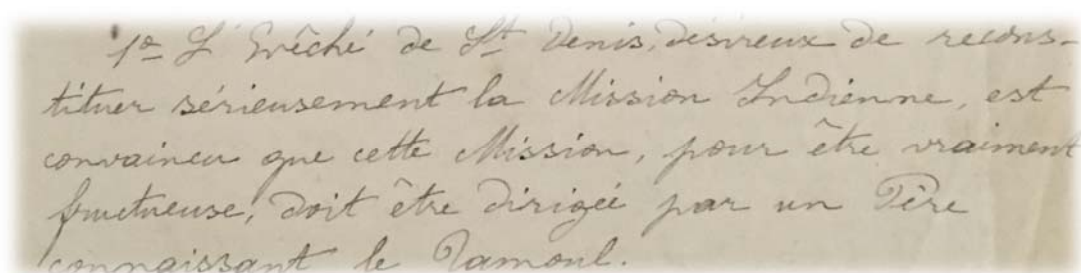 1º L'Evêché de St Denis, désireux de recons-
tituer sérieusement la Mission Indienne, est
convaincu que cette Mission, pour être vraiment
fructueuse, doit être dirigée par un Père
connaissant le Tamoul.